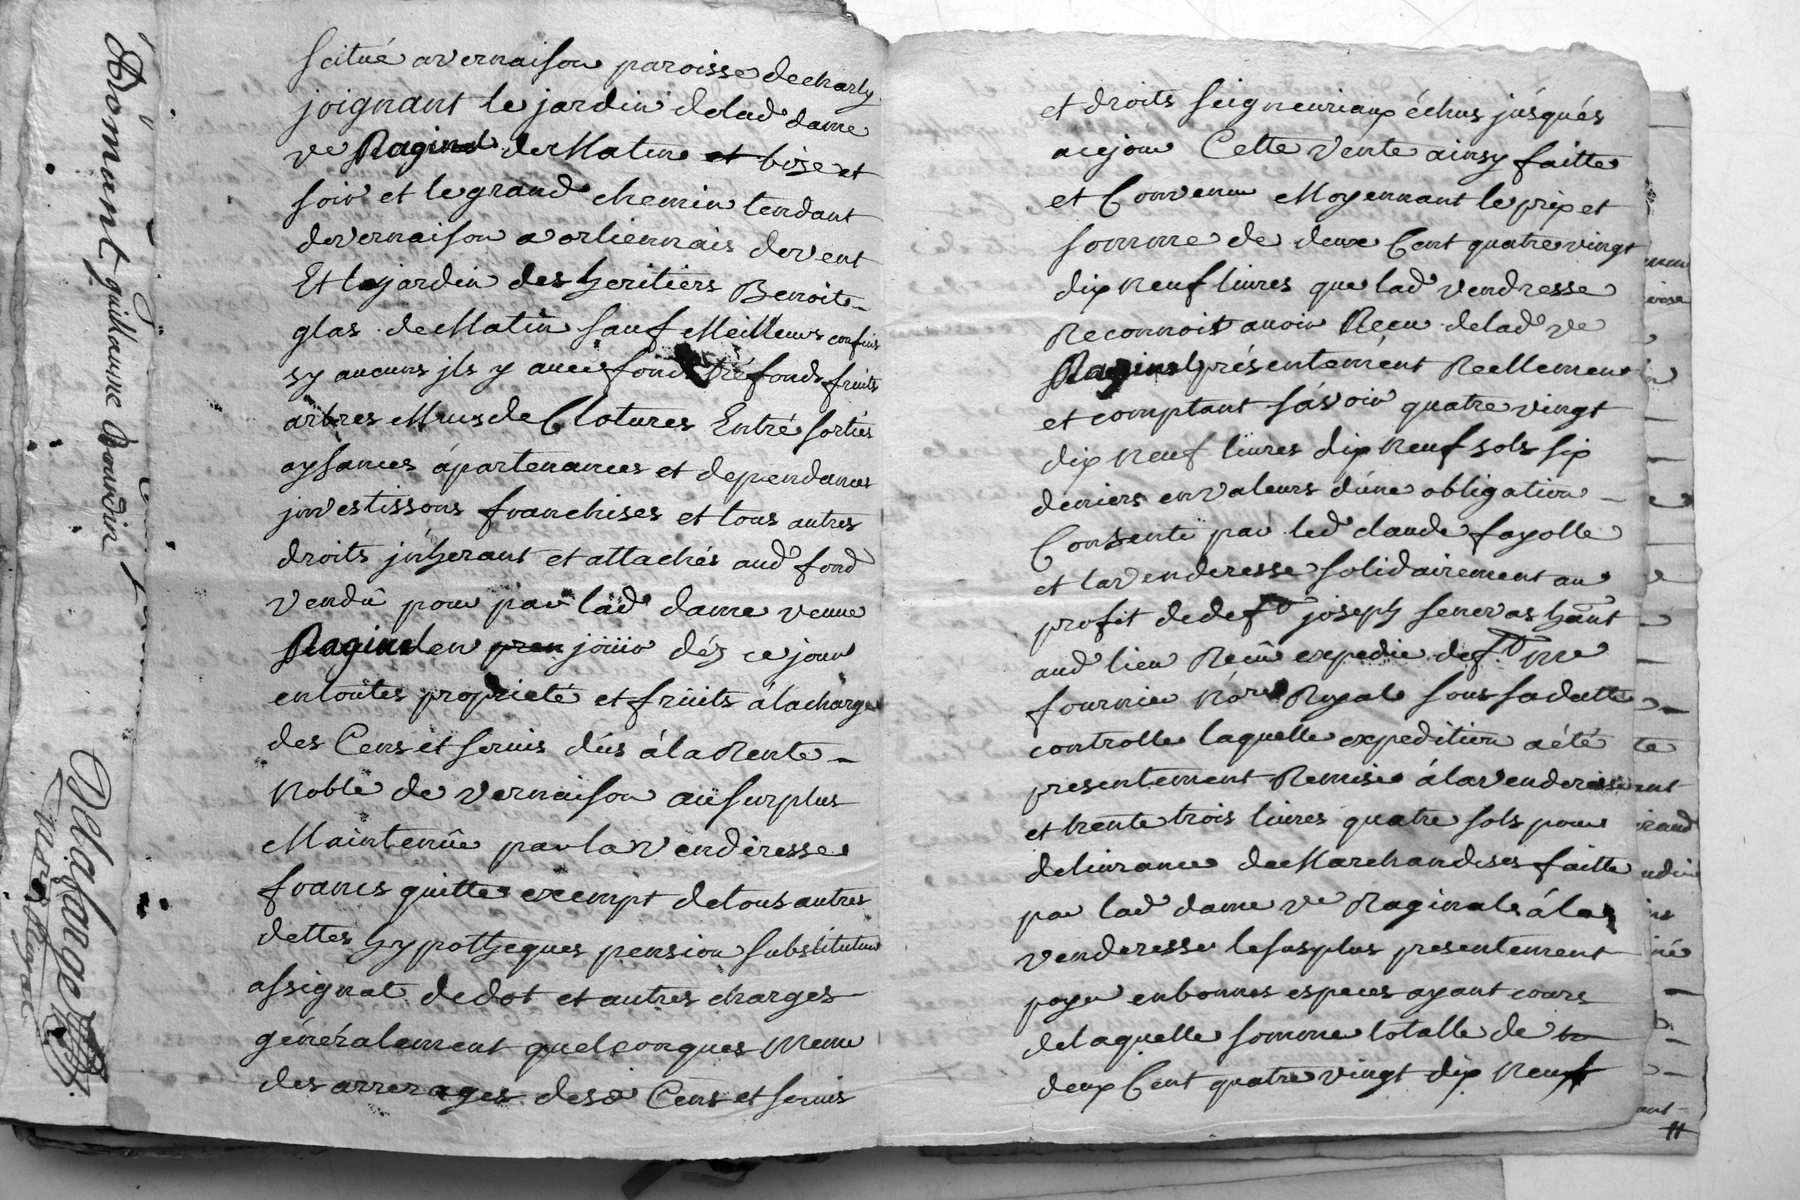 scitué a vernaison paroisse de charly
joignant le jardin de lad dame
ve Raginel de Matin et bize et
soir et le grand chemin tendant
de vernaison a orliennais de vent
Et le jardin des heritiers Benoite
glas de Matin sauf Meilleurs confins
sy aucuns jls y a avec fonds tréfonds fruits
arbres Murs de Clotures Entré sorties
aysances ápartenances et dependances
jnvestissons franchises et tous autres
droits jnherant et attachés aud fond
vendû pour par lad dame veuve
Raginel en pren joüir dés ce jour
en toutes proprieté et früits á la charge
des Cens et servis dûs á la Rente
Noble de vernaison aü surplus
Maintenûe par la venderesse
francs quitte exempt de tous autres
dettes hypotheques pension substitution
assignat de dot et autres charges
généralement quelconques meme
des arrerages desd Cens et servis
et droits seigneuriaux échus júsqués
a ce jour Cette vente ainsy faitte
et Convenu Moyennant le prix et
somme de deux Cent quatre vingt
dix neuf livres que lad vendresse
Reconnoit avoir Recu de lad ve
Raginel présentement Reellement
et comptant sávoir quatre vingt
dix neuf livres dix neuf sols six
deniers en valeurs d'une obligation
Consenti par led claude fayolle
et la venderesse solidairement au
profit de deft joseph senevas
aud lieu Recüe expedié deft me
fournier Nore Royal sous sa datte
controlle laquelle expedition a été
presentement Remise á la venderesse
et trente trois livres quatre sols pour
delivrance de Marchandises faitte
par lad dame ve Raginel á la
venderesse le susplus presentement
payer en bonnes especes ayant cours
de laquelle somme totalle de
deux Cent quatre vingt dix neuf
Romant guillaume dourdin
Delafange